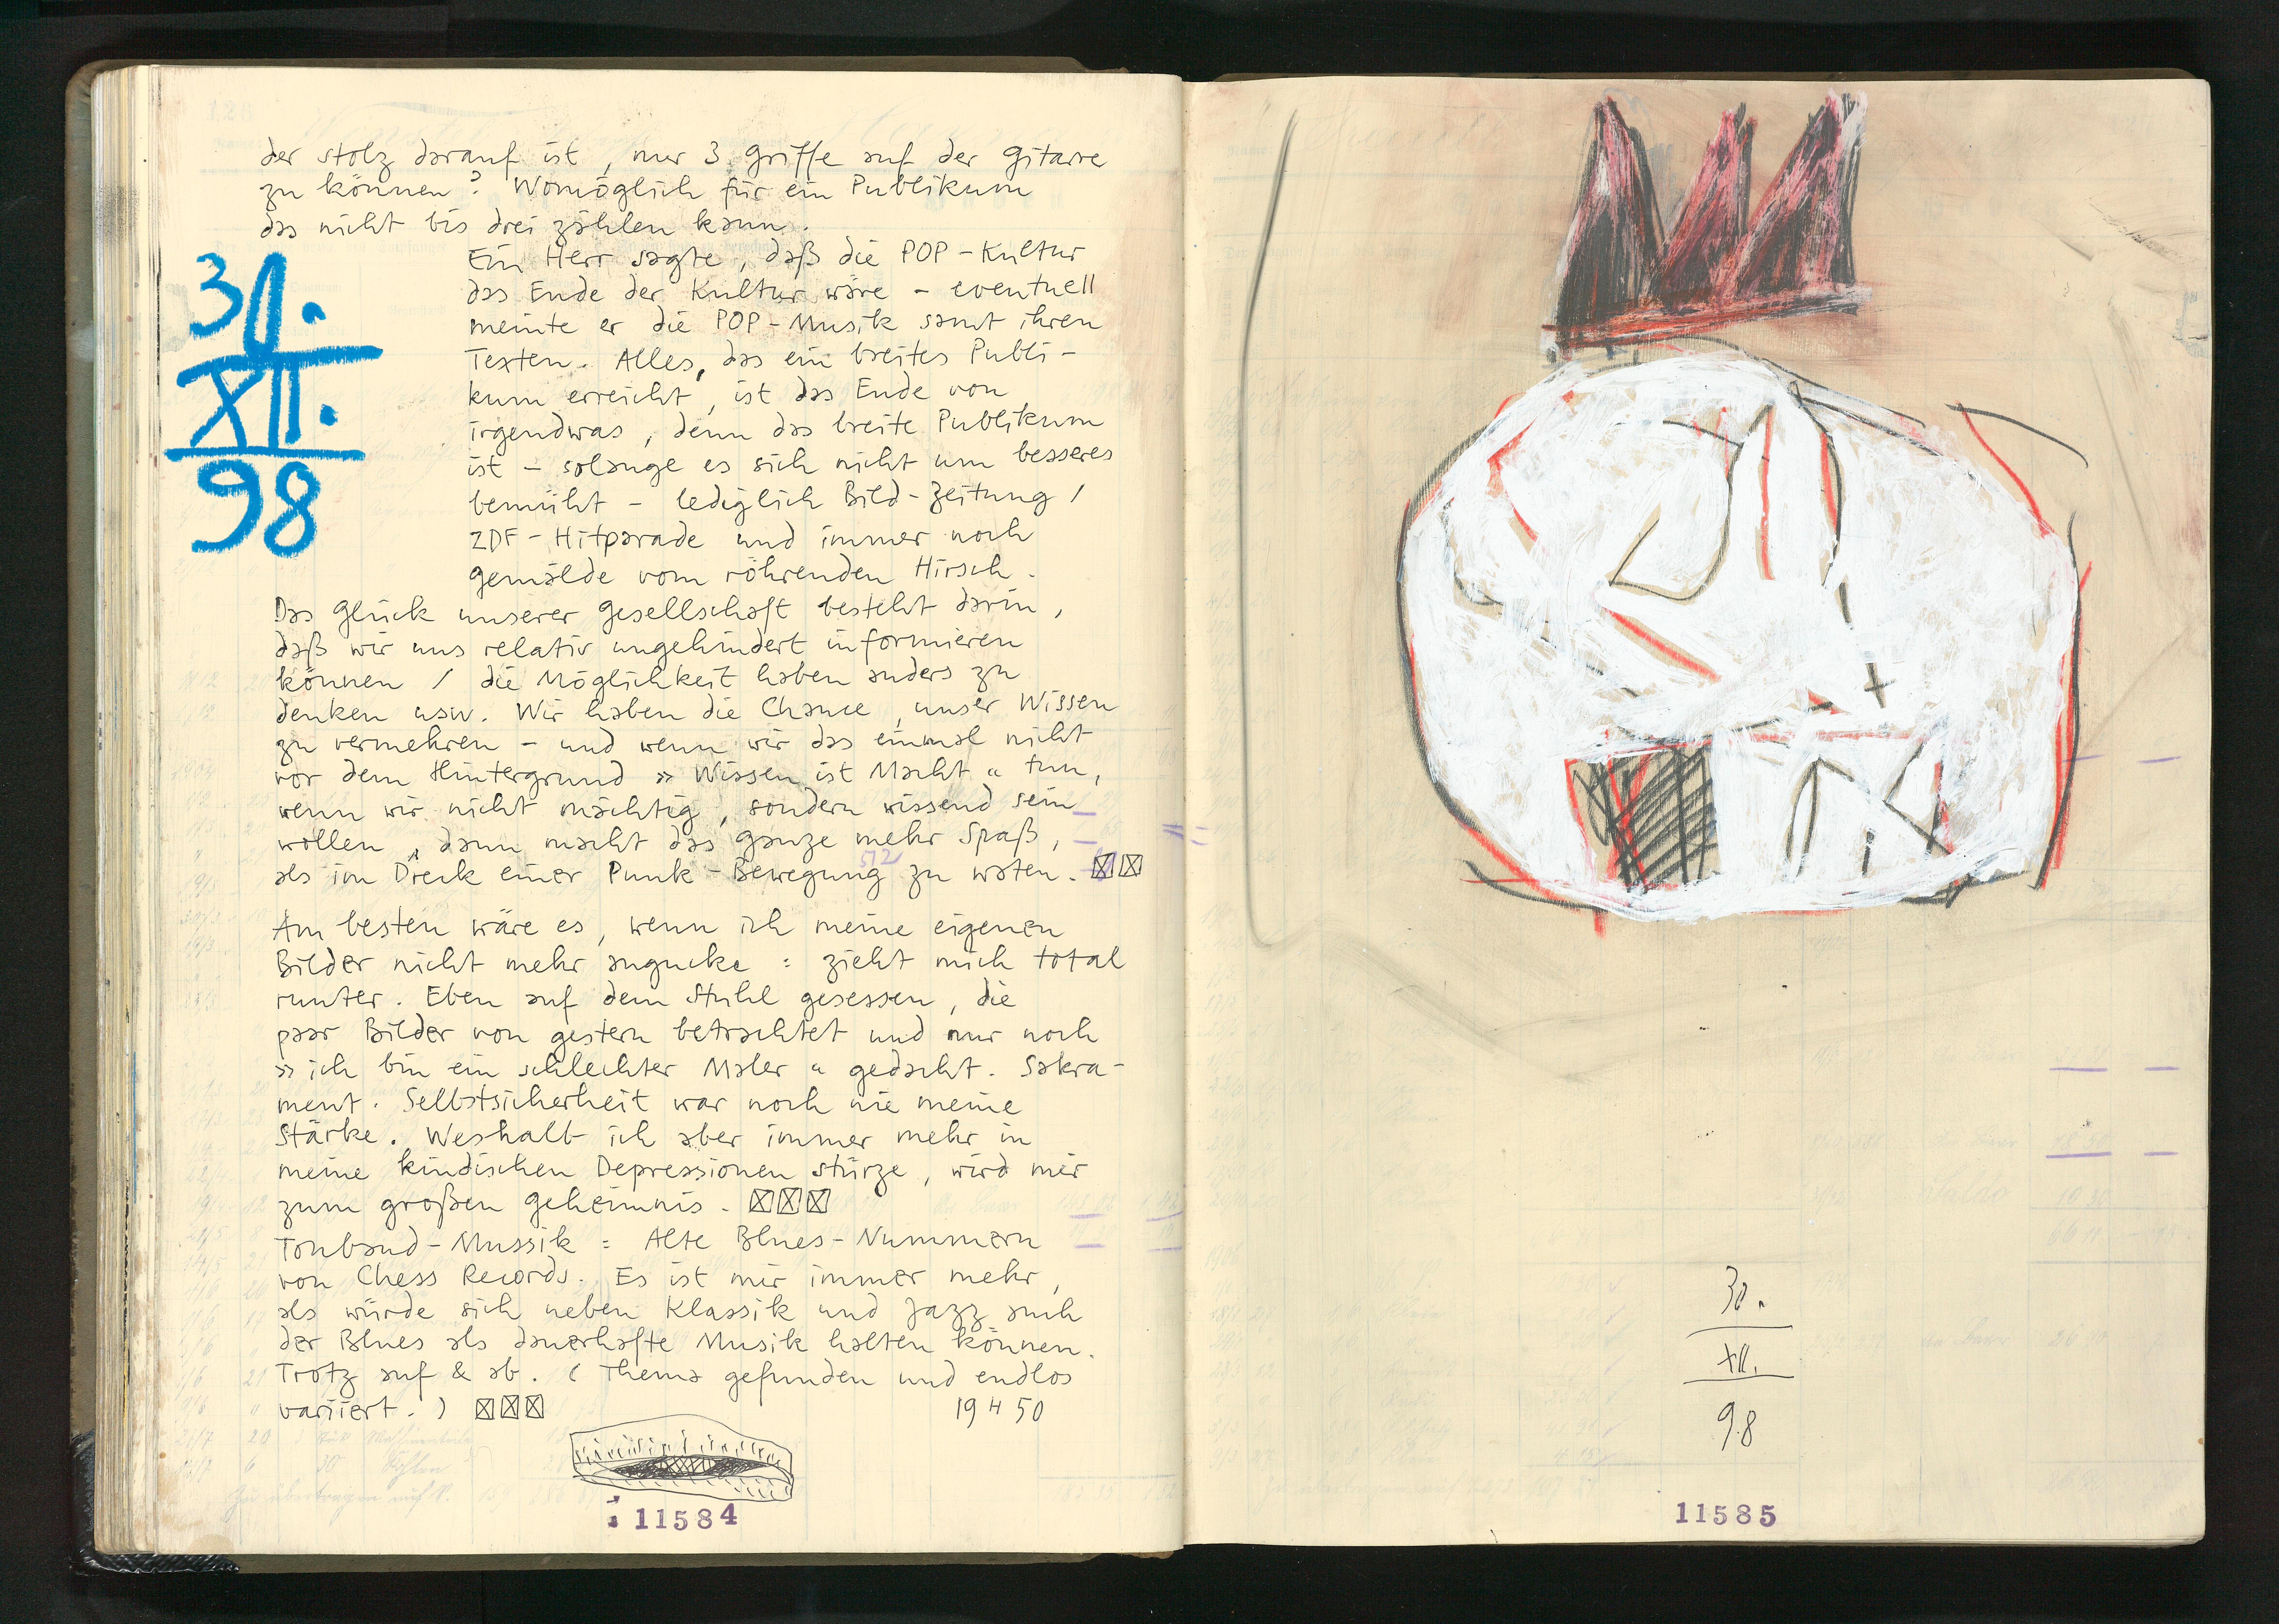 der stolz darauf ist, nur 3 Griffe auf der Gitarre
zu können? Womöglich für ein Publikum
das nicht bis drei zählen kann.
30.
XII.
98
Ein Herr sagte, daß die POP-Kultur
das Ende der Kultur wäre – eventuell
meinte er die POP-Musik samt ihren
Texten. Alles, das ein breites Publi-
kum erreicht, ist das Ende von
irgendwas, denn das breite Publikum
ist – solange es sich nicht um besseres
bemüht – lediglich Bild-Zeitung /
ZDF-Hitparade und immer noch
Gemälde vom röhrenden Hirsch.
Das Glück unserer Gesellschaft besteht darin,
daß wir uns relativ ungehindert informieren
können / die Möglichkeit haben anders zu
denken usw. Wir haben die Chance, unser Wissen
zu vermehren – und wenn wir das einmal nicht
vor dem Hintergrund » Wissen ist Macht « tun,
wenn wir nicht mächtig, sondern wissend sein
wollen, dann macht das ganze mehr Spaß,
als im Dreck einer Punk-Bewegung zu waten.
Am besten wäre es, wenn ich meine eigenen
Bilder nicht mehr angucke: zieht mich total
runter. Eben auf dem Stuhl gesessen, die
paar Bilder von gestern betrachtet und nur noch
» ich bin ein schlechter Maler « gedacht. Sakra-
ment. Selbstsicherheit war noch nie meine
Stärke. Weshalb ich aber immer mehr in
meine kindischen Depressionen stürze, wird mir
zum großen Geheimnis.
Tonband-Mussik: Alte Blues-Nummern
von Chess Records. Es ist mir immer mehr,
als würde sich neben Klassik und Jazz auch
der Blues als dauerhafte Musik halten können.
Trotz auf & ab. (Thema gefunden und endlos
variiert.) 19 H 50
11584
30.
XII.
98
11585